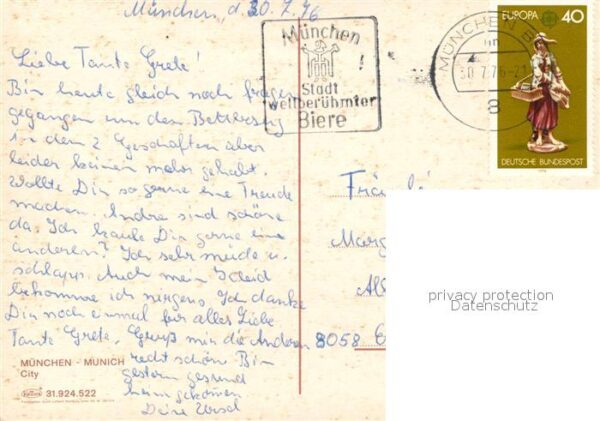 München, d. 30.7.76
Liebe Tante Grete!
Bin heute gleich noch fragen
gegangen um den
in den 2 Geschäften aber
leider keinen mehr gehabt.
Wollte Dir so gerne eine Freude
machen. Andre sind schöne
da. Ich kaufe Dir gerne eine
anderen? Ich sehr müde u.
schlapp. Auch mein Kleid
bekomme ich nirgens. Ich danke
Dir noch einmal für alles Liebe
Tante Grete. Gruß mir die Anderen
recht schön Bin
gestern gesund
heim gekommen
Deine Ursel
MÜNCHEN - MUNICH
City
31.924.522
München
!
Stadt
weltberühmter
Biere
MÜNCHEN
30.7.76-21
8
EUROPA 40
DEUTSCHE BUNDESPOST
Fräulein
8058
privacy protection
Datenschutz